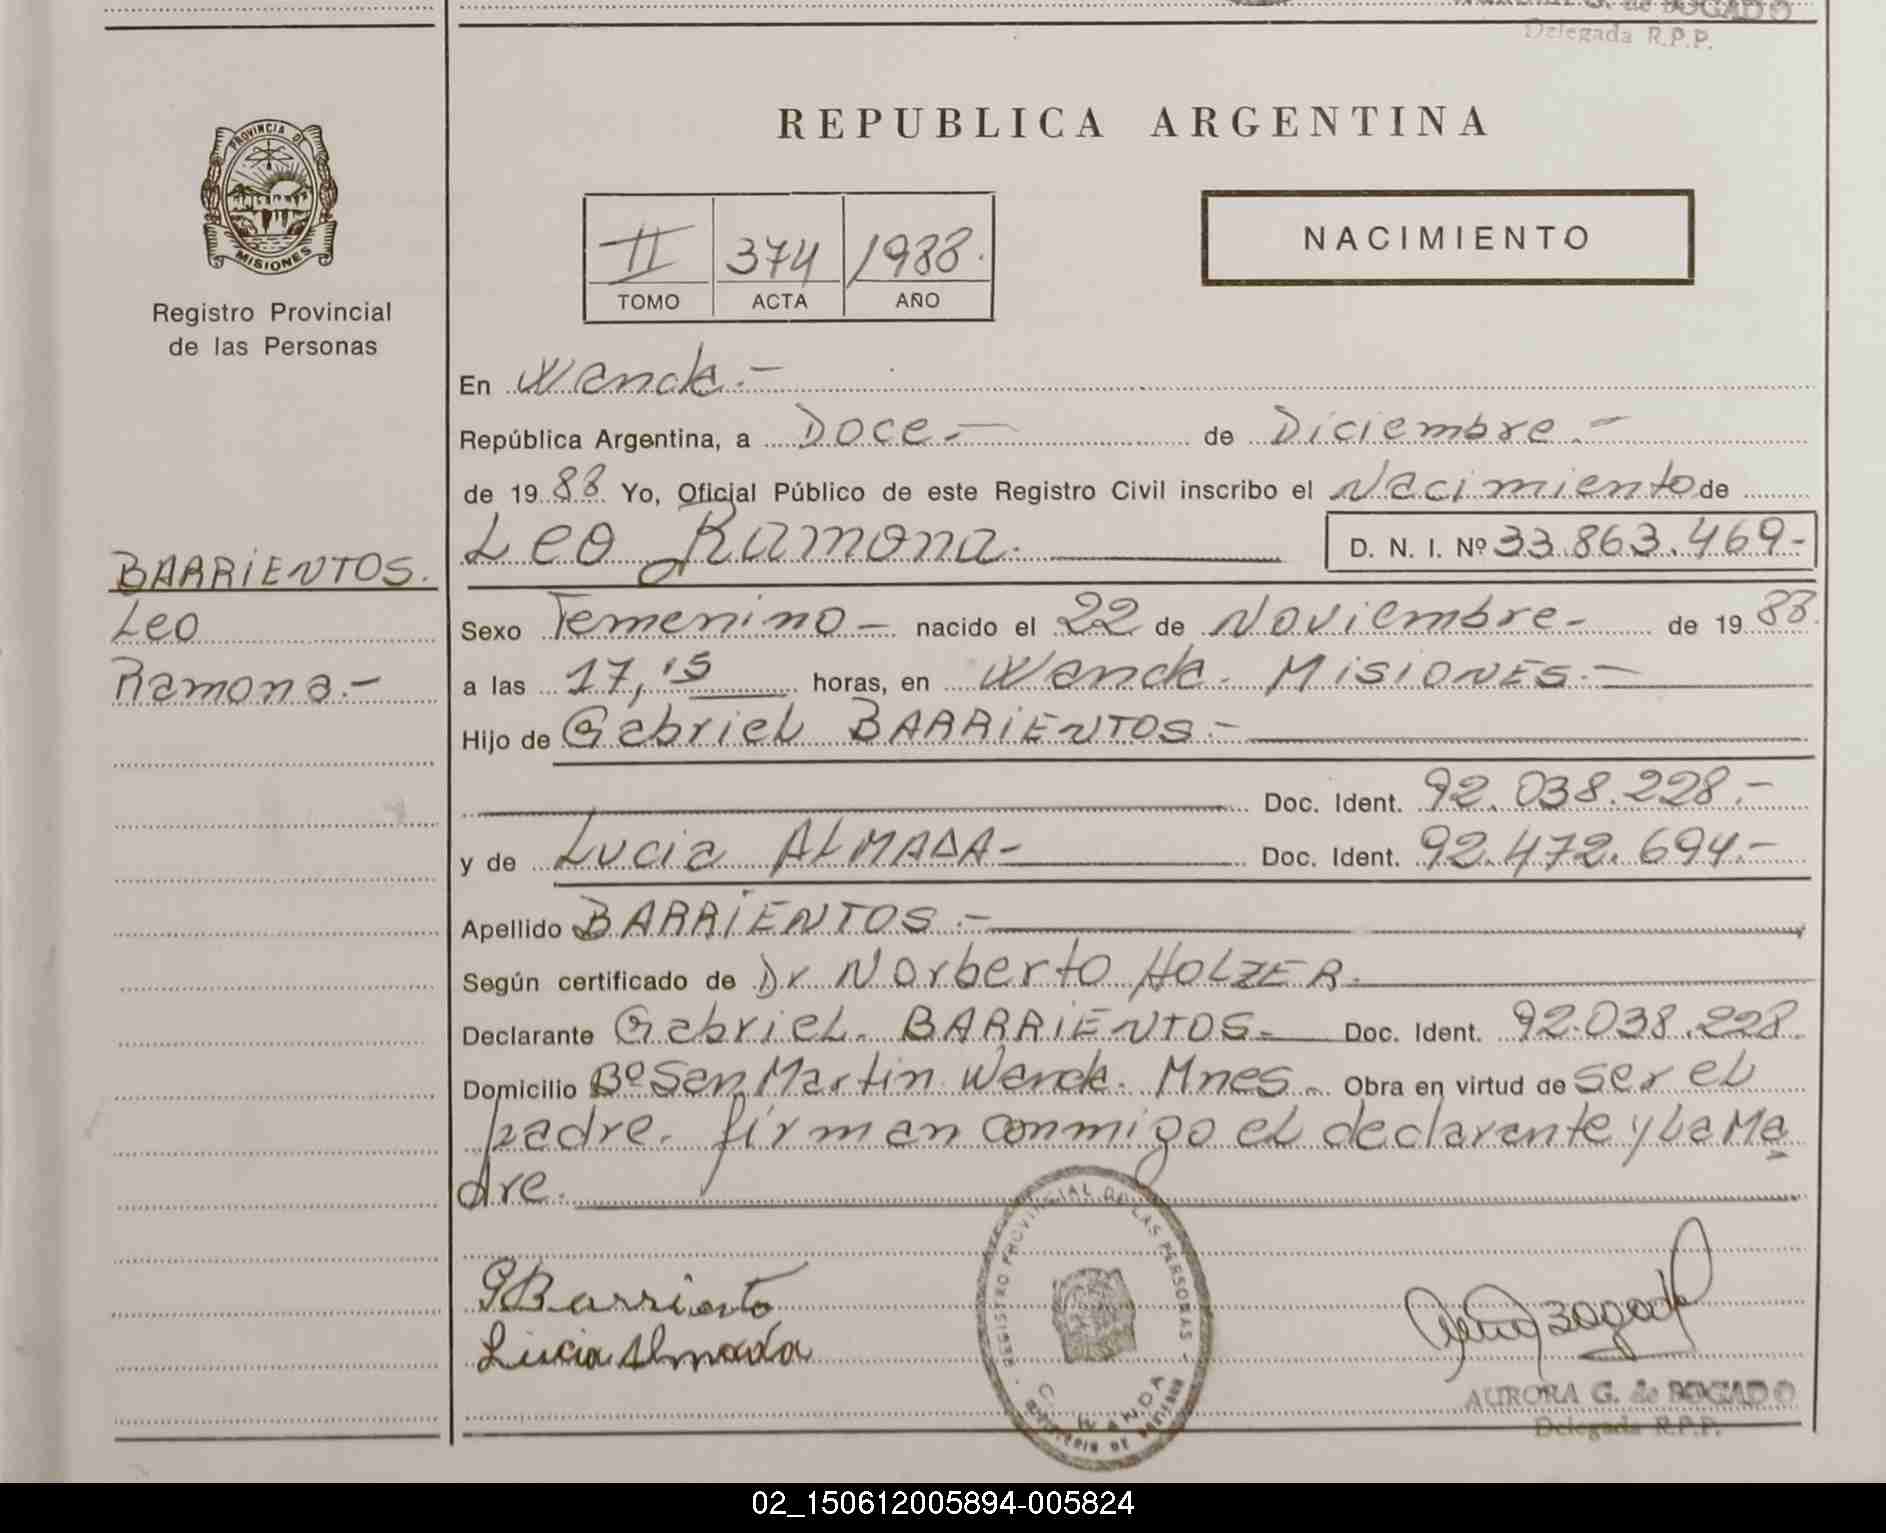 G. de BOGADO
Delegada R.P.P.
REPUBLICA ARGENTINA
PROVINCIA DE
MISIONES
Registro Provincial
de las Personas
II 374 1988.
TOMO ACTA AÑO
NACIMIENTO
En Wanda.-
República Argentina, a Doce.- de Diciembre.-
de 19 88 Yo, Oficial Público de este Registro Civil inscribo el Nacimiento de
Leo Ramona. D. N. I. Nº 33.863.469-
BARRIENTOS.
Leo
Ramona.-
Sexo Femenino- nacido el 22 de Noviembre- de 19 88.
a las 17,15 horas, en Wanda. MISIONES.-
Hijo de Gabriel BARRIENTOS.-
Doc. Ident. 92.038.228.-
y de Lucia ALMADA- Doc. Ident. 92.472.694.-
Apellido BARRIENTOS.-
Según certificado de Dr. Norberto HOLZER.
Declarante Gabriel. BARRIENTOS- Doc. Ident. 92.038.228.
Domicilio Bº San Martin Wanda. Mnes. Obra en virtud de ser el
padre. firman conmigo el declarante y la Ma
dre.
GBarriento
Lucia Almada
REGISTRO PROVINCIAL DE LAS PERSONAS
WANDA
AURORA G. de BOGADO
Delegada R.P.P.
02_150612005894-005824